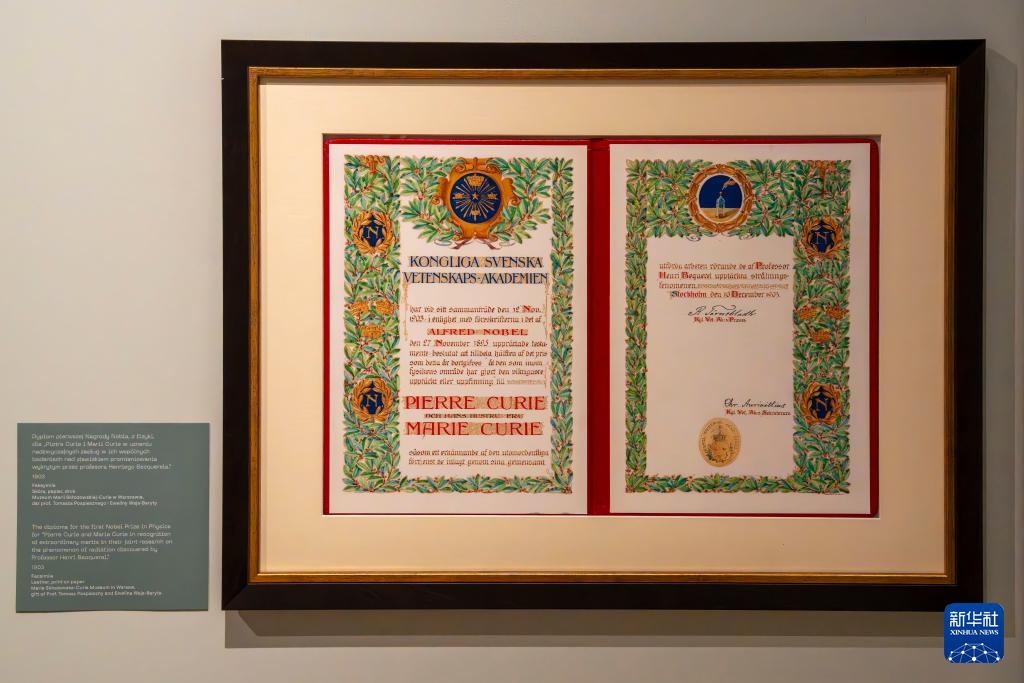 KONGLIGA SVENSKA
VETENSKAPS-AKADEMIEN
har vid sitt sammanträde den 12 Nov.
1903 i enlighet med föreskrifterna i det af
ALFRED NOBEL
den 27 November 1895 upprättade testa-
mente beslutat att tilldela hälften af det pris
som detta år bortgifves åt den som inom
fysikens område har gjort den viktigaste
upptäckt eller uppfinning till
PIERRE CURIE
OCH HANS HUSTRU FRU
MARIE CURIE
såsom ett erkännande af den utomordentliga
förtjenst de inlagt genom sina gemensamt
utförda arbeten rörande de af Professor
Henri Becquerel upptäckta strålnings-
fenomenen.
Stockholm den 10 December 1903.
Kgl. Vet. Akis Præses
Kgl. Vet. Akis Sekreterare
N
N
N
N
Dyplom pierwszej Nagrody Nobla z fizyki,
dla „Piotra Curie i Marii Curie w uznaniu
nadzwyczajnych zasług w ich wspólnych
badaniach nad zjawiskiem promieniowania
wykrytym przez profesora Henriego Becquerela."
1903
Faksymile
Skóra, papier, druk
Muzeum Marii Skłodowskiej-Curie w Warszawie,
dar prof. Tomasza Pospiesznego i Eweliny Wajs-Baryły
The diploma for the first Nobel Prize in Physics
for "Pierre Curie and Maria Curie in recognition
of extraordinary merits in their joint research on
the phenomenon of radiation discovered by
Professor Henri Becquerel."
1903
Facsimile
Leather, print on paper
Maria Skłodowska-Curie Museum in Warsaw,
gift of Prof. Tomasz Pospieszny and Ewelina Wajs-Baryła
新华社
XINHUA NEWS